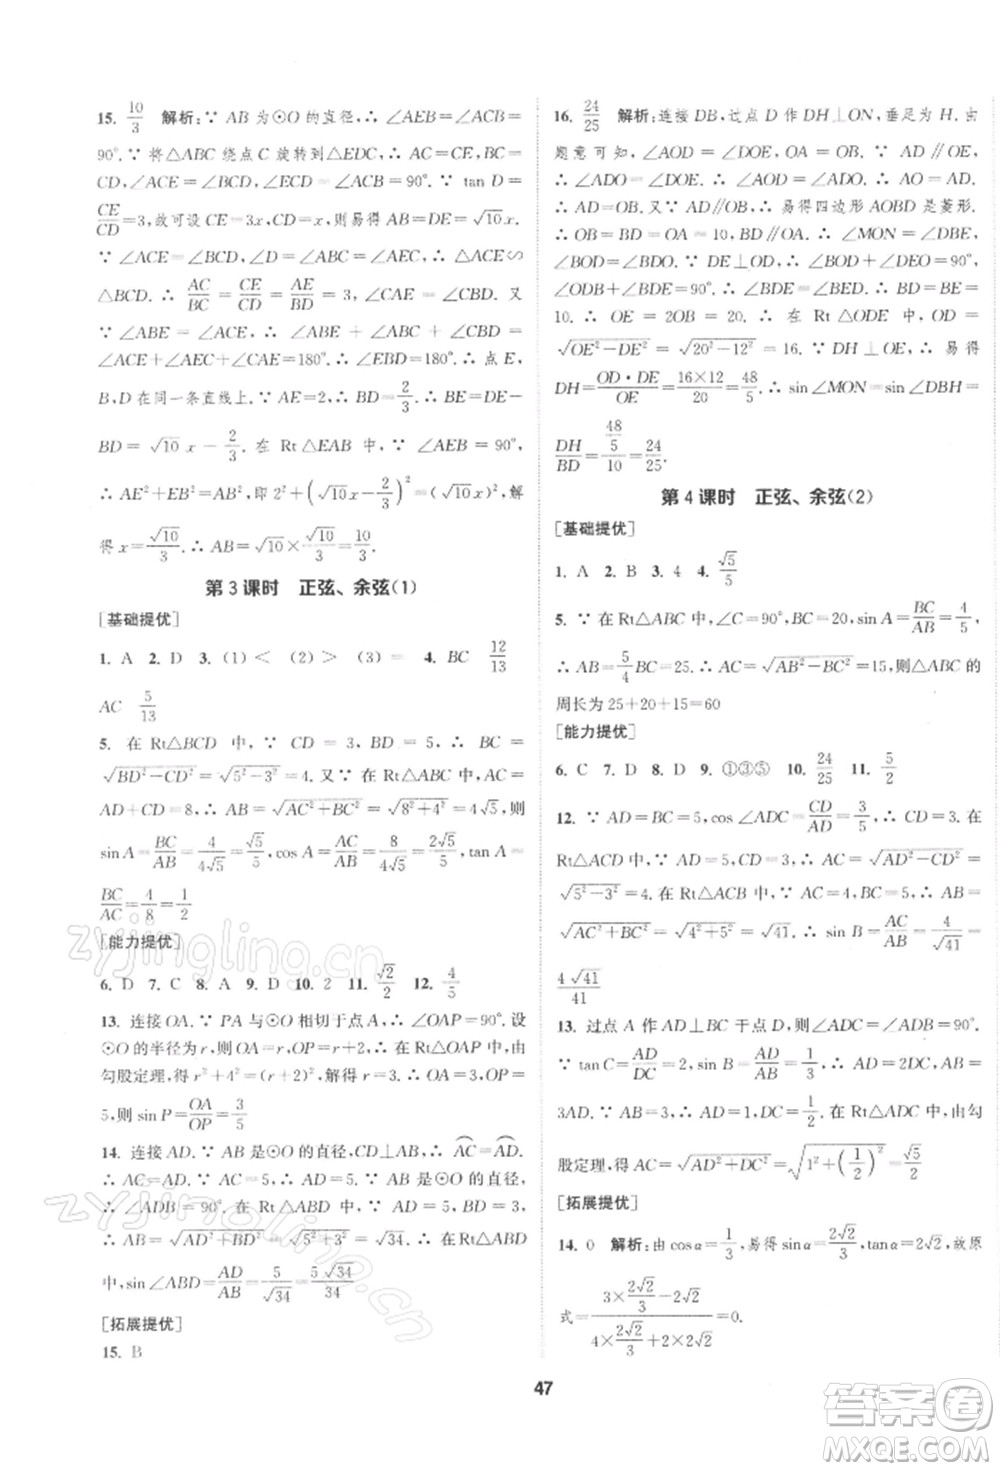 15. 10/3 解析:∵ AB为⊙O的直径,∴ ∠AEB=∠ACB=
90°.∵ 将△ABC绕点C旋转到△EDC,∴ AC=CE,BC=
CD,∠ACE=∠BCD,∠ECD=∠ACB=90°.∵ tan D=
CE/CD=3,故可设CE=3x,CD=x,则易得AB=DE=√10x.
∵ ∠ACE=∠BCD,∠D=∠BAC,∴ △ACE∽
△BCD.∴ AC/BC=CE/CD=AE/BD=3,∠CAE=∠CBD.又
∵ ∠ABE=∠ACE,∴ ∠ABE+∠ABC+∠CBD=
∠ACE+∠AEC+∠CAE=180°.∴ ∠EBD=180°.∴ 点E,
B,D在同一条直线上.∵ AE=2,∴ BD=2/3.∴ BE=DE-
BD=√10x-2/3.在Rt△EAB中,∵ ∠AEB=90°,
∴ AE²+EB²=AB²,即2²+(√10x-2/3)²=(√10x)²,解
得x=√10/3.∴ AB=√10×√10/3=10/3.
第3课时 正弦、余弦(1)
[基础提优]
1. A 2. D 3. (1)< (2)> (3)= 4. BC 12/13
AC 5/13
5. 在Rt△BCD中,∵ CD=3,BD=5,∴ BC=
√(BD²-CD²)=√(5²-3²)=4.又∵ 在Rt△ABC中,AC=
AD+CD=8,∴ AB=√(AC²+BC²)=√(8²+4²)=4√5.则
sin A=BC/AB=4/(4√5)=√5/5,cos A=AC/AB=8/(4√5)=2√5/5,tan A=
BC/AC=4/8=1/2
[能力提优]
6. D 7. C 8. A 9. D 10. 2 11. √2/2 12. 4/5
13. 连接OA.∵ PA与⊙O相切于点A,∴ ∠OAP=90°.设
⊙O的半径为r,则OA=r,OP=r+2.在Rt△OAP中,由
勾股定理,得r²+4²=(r+2)²,解得r=3.∴ OA=3,OP=
5,则sin P=OA/OP=3/5
14. 连接AD.∵ AB是⊙O的直径,CD⊥AB,∴ AC=AD.
∴ AC=AD=5.∵ AB是⊙O的直径,
∴ ∠ADB=90°.在Rt△ABD中,AD=5,BD=3,
∴ AB=√(AD²+BD²)=√(5²+3²)=√34.∴ 在Rt△ABD
中,sin∠ABD=AD/AB=5/√34=5√34/34
[拓展提优]
15. B
16. 24/25 解析:连接DB,过点D作DH⊥ON,垂足为H.由
题意可知,∠AOD=∠DOE,OA=OB.∵ AD∥OE,
∴ ∠ADO=∠DOE.∴ ∠AOD=∠ADO.∴ AO=AD.
∴ AD=OB.又∵ AD∥OB,∴ 易得四边形AOBD是菱形.
∴ OB=BD=OA=10,BD∥OA.∴ ∠MON=∠DBE,
∠BOD=∠BDO.∵ DE⊥OD,∴ ∠BOD+∠DEO=90°,
∠ODB+∠BDE=90°.∴ ∠BDE=∠BED.∴ BE=BD=
10.∴ OE=2OB=20.∴ 在Rt△ODE中,OD=
√(OE²-DE²)=√(20²-12²)=16.∵ DH⊥OE,∴ 易得
DH=OD·DE/OE=16×12/20=48/5.∴ sin∠MON=sin∠DBH=
DH/BD=(48/5)/10=24/25.
第4课时 正弦、余弦(2)
[基础提优]
1. A 2. B 3. 4 4. √5/5
5. ∵ 在Rt△ABC中,∠C=90°,BC=20,sin A=BC/AB=4/5,
∴ AB=5/4BC=25.∴ AC=√(AB²-BC²)=15,则△ABC的
周长为25+20+15=60
[能力提优]
6. C 7. D 8. D 9. ①③⑤ 10. 24/25 11. 5/2
12. ∵ AD=BC=5,cos∠ADC=CD/AD=3/5,∴ CD=3.在
Rt△ACD中,∵ AD=5,CD=3,∴ AC=√(AD²-CD²)=
√(5²-3²)=4.在Rt△ACB中,∵ AC=4,BC=5,∴ AB=
√(AC²+BC²)=√(4²+5²)=√41.∴ sin B=AC/AB=4/√41=
4√41/41
13. 过点A作AD⊥BC于点D,则∠ADC=∠ADB=90°.
∵ tan C=AD/DC=2,sin B=AD/AB=1/3,∴ AD=2DC,AB=
3AD.∵ AB=3,∴ AD=1,DC=1/2.在Rt△ADC中,由勾
股定理,得AC=√(AD²+DC²)=√(1²+(1/2)²)=√5/2
[拓展提优]
14. 0 解析:由cos α=1/3,易得sin α=2√2/3,tan α=2√2,故原
式=(3×2√2/3-2√2)/(4×2√2/3+2×2√2)=0.
47
zyjingling.cn
zyjingling.cn
答案圈
MXQE.COM